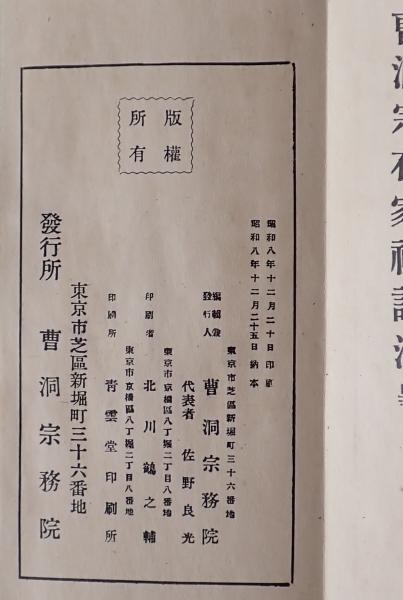 曹洞宗在家禮
版權
所有
昭和八年十二月二十日印刷
昭和八年十二月二十五日納本
東京市芝區新堀町三十六番地
編輯兼
發行人
曹洞宗務院
代表者 佐野良光
東京市京橋區八丁堀二丁目八番地
印刷者 北川鶴之輔
東京市京橋區八丁堀二丁目八番地
印刷所 靑雲堂印刷所
東京市芝區新堀町三十六番地
發行所 曹洞宗務院